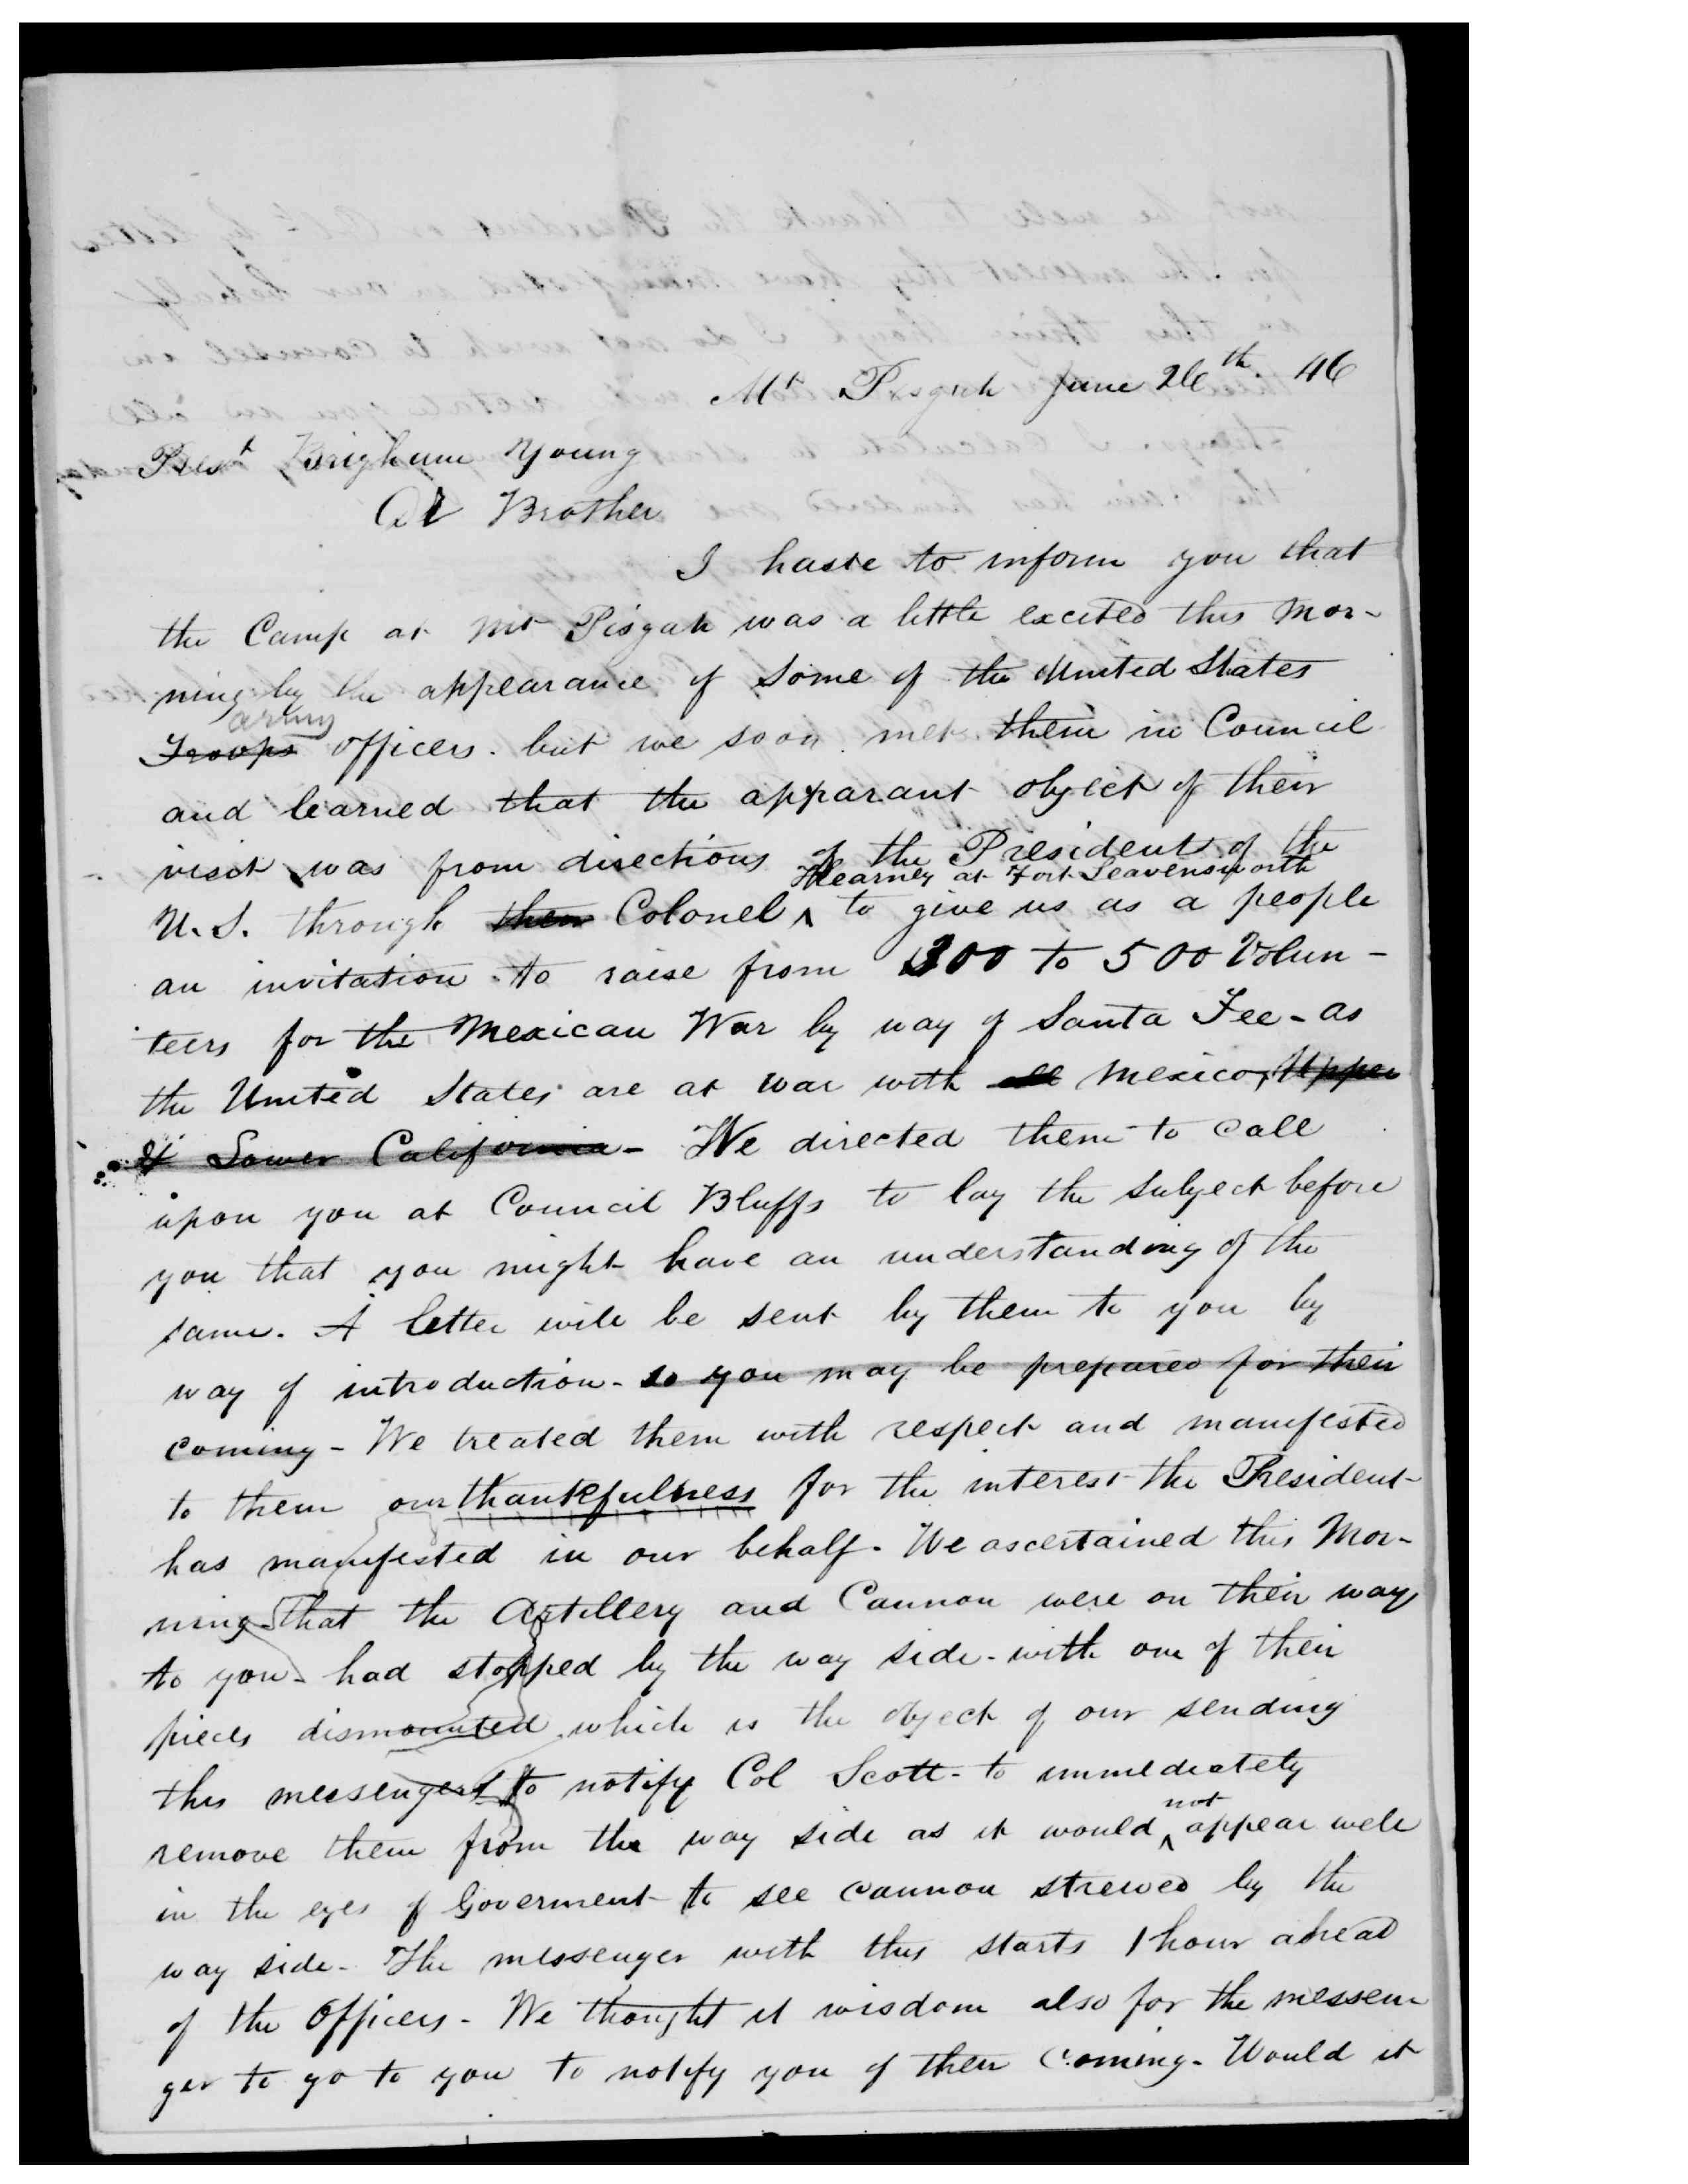 Mt Pisgah June 26th. 46
Prest Brigham Young
Dr Brother
I haste to inform you that
the Camp at Mt Pisgah was a little excited this Mor-
ning by the appearance of some of the United States
army
Troops officers. but we soon met them in Council
and learned that the apparant object of their
visit was from directions of the President of the
Kearney at Fort Leavensworth
U.S. through their Colonel ^ to give us as a people
an invitation to raise from 300 to 500 Volun-
teers for the Mexican War by way of Santa Fee - as
the United States are at war with all Mexico, Upper
& Lower California - We directed them to call
upon you at Council Bluffs to lay the subject before
you that you might have an understanding of the
same. A letter will be sent by them to you by
way of introduction - so you may be prepared for their
coming - We treated them with respect and manifested
to them our thankfulness for the interest the President
has manifested in our behalf. We ascertained this Mor-
ning that the Artillery and Cannon were on their way
to you - had stopped by the way side - with one of their
pieces dismounted which is the object of our sending
this messenger to notify Col Scott - to immediately
not
remove them from the way side as it would ^ appear well
in the eyes of Goverment to see cannon strewed by the
way side - The messenger with this starts 1 hour ahead
of the Officers - We thought it wisdom also for the messen
ger to go to you to notify you of their coming. Would it